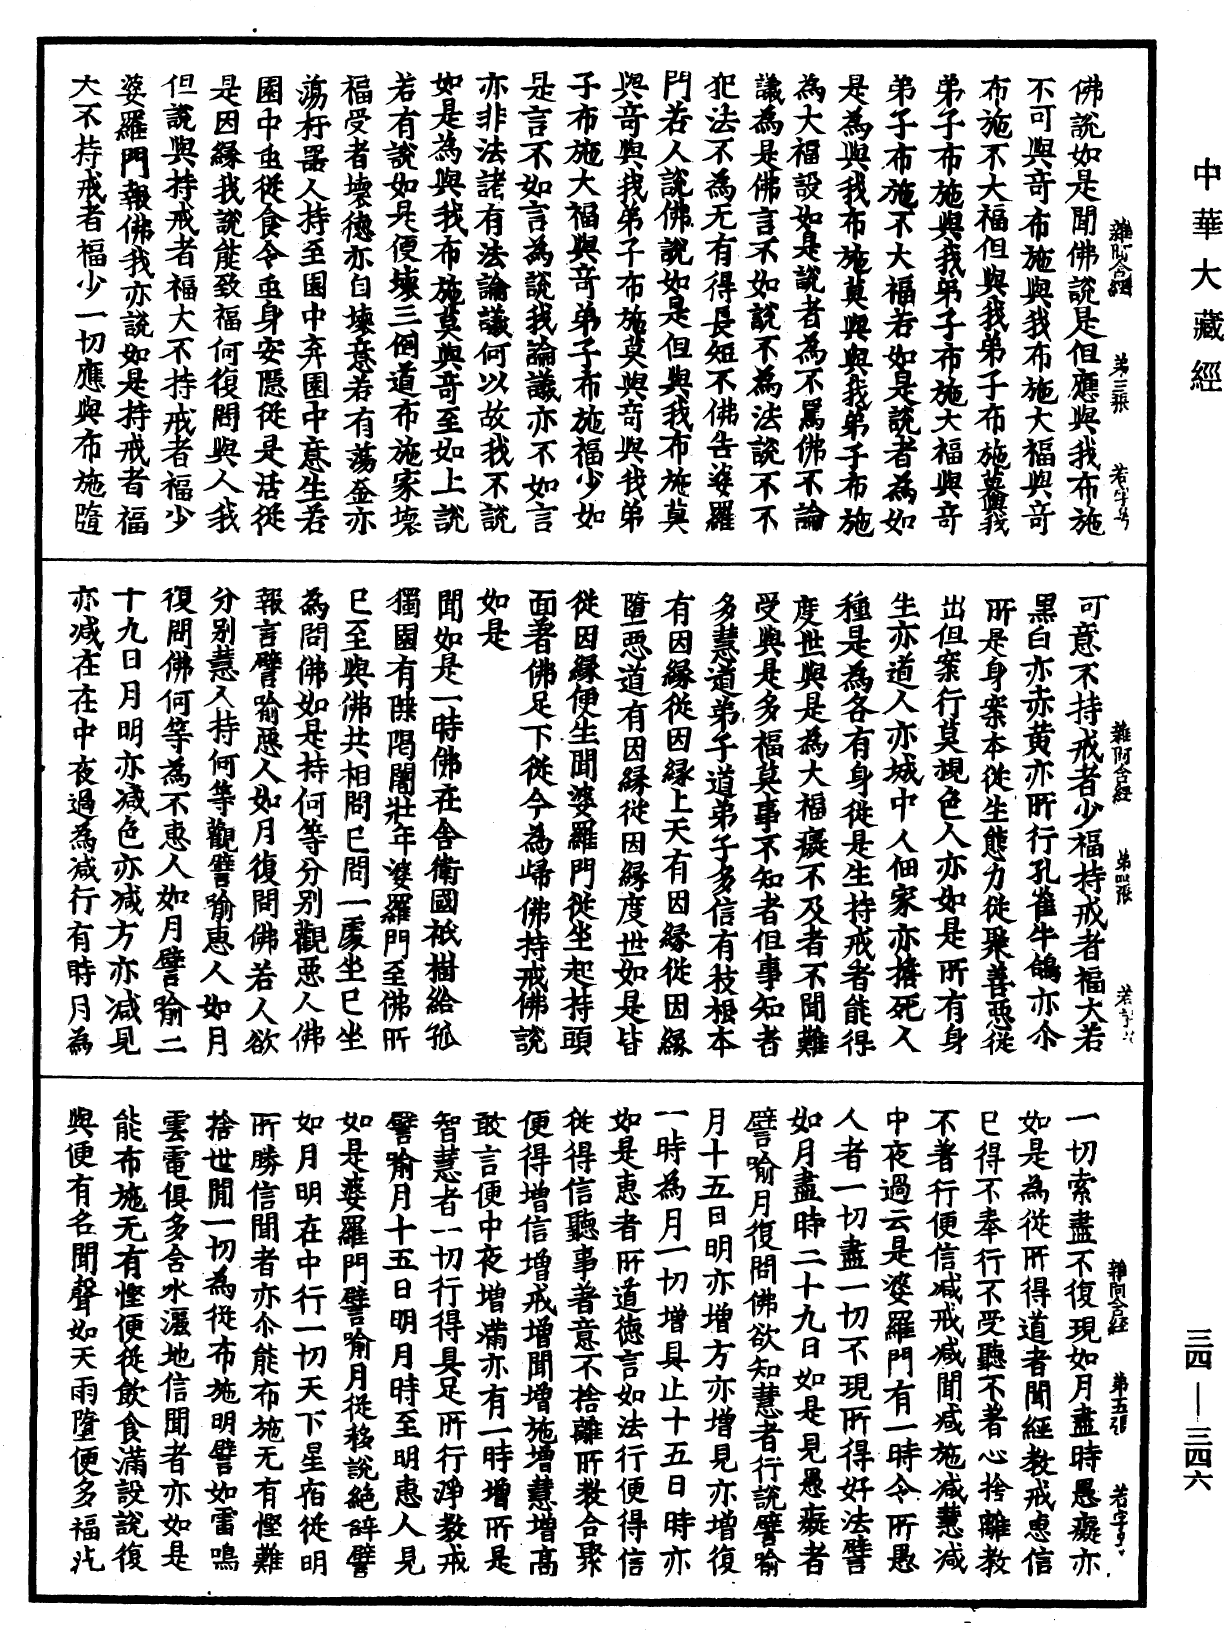 中華大藏經
雜阿含經　第三張　若字号
佛說如是聞佛說是但應與我布施
不可與奇布施與我布施大福與奇
布施不大福但與我弟子布施莫與我
弟子布施與我弟子布施大福與奇
弟子布施不大福若如是說者為如
是為與我布施莫與與我弟子布施
為大福設如是說者為不罵佛不論
議為是佛言不如說不為法說不不
犯法不為无有得長短不佛告婆羅
門若人說佛說如是但與我布施莫
與奇與我弟子布施莫與奇與我弟
子布施大福與奇弟子布施福少如
是言不如言為說我論議亦不如言
亦非法諸有法論議何以故我不說
如是為與我布施莫與奇至如上說
若有說如是便壞三倒道布施家壞
福受者壞德亦自壞意若有蕩釜亦
蕩杅器人持至園中弃園中意生若
園中虫從食令虫身安隱從是活從
是因緣我說能致福何復問與人我
但說與持戒者福大不持戒者福少
婆羅門報佛我亦說如是持戒者福
大不持戒者福少一切應與布施隨
雜阿含經　第四張　若字号
可意不持戒者少福持戒者福大若
黑白亦赤黃亦所行孔雀牛鴿亦尒
所是身案本從生態力從聚善惡從
出但案行莫視色人亦如是所有身
生亦道人亦城中人佃家亦擔死人
種是為各有身從是生持戒者能得
度世與是為大福癡不及者不聞難
受與是多福莫事不知者但事知者
多慧道弟子道弟子多信有技根本
有因緣從因緣上天有因緣從因緣
墮惡道有因緣從因緣度世如是皆
從因緣便生聞婆羅門從坐起持頭
面著佛足下從今為歸佛持戒佛說
如是
聞如是一時佛在舍衛國祇樹給孤
獨園有𨻶陽闍壯年婆羅門至佛所
已至與佛共相問已問一處坐已坐
為問佛如是持何等分別觀惡人佛
報言譬喻惡人如月復問佛若人欲
分別慧人持何等觀譬喻惠人如月
復問佛何等為不惠人如月譬喻二
十九日月明亦減色亦減方亦減見
亦減在在中夜過為減行有時月為
雜阿含經　第五張　若字号
一切索盡不復現如月盡時愚癡亦
如是為從所得道者聞經教戒惠信
已得不奉行不受聽不著心捨離教
不著行便信減戒減聞減施減慧減
中夜過云是婆羅門有一時令所愚
人者一切盡一切不現所得好法譬
如月盡時二十九日如是見愚癡者
譬喻月復問佛欲知慧者行說譬喻
月十五日明亦增方亦增見亦增復
一時為月一切增具止十五日時亦
如是惠者所道德言如法行便得信
從得信聽事著意不捨離所教合聚
便得增信增戒增聞增施增慧增高
敢言便中夜增滿亦有一時增所是
智慧者一切行得具足所行淨教戒
譬喻月十五日明月時至明惠人見
如是婆羅門譬喻月從移說絕辭譬
如月明在中行一切天下星宿從明
所勝信聞者亦尒能布施无有慳難
捨世間一切為從布施明譬如雷鳴
雲電俱多含水灑地信聞者亦如是
能布施无有慳便從飲食滿設說復
與便有名聞聲如天雨墮便多福汔
三四—三四六